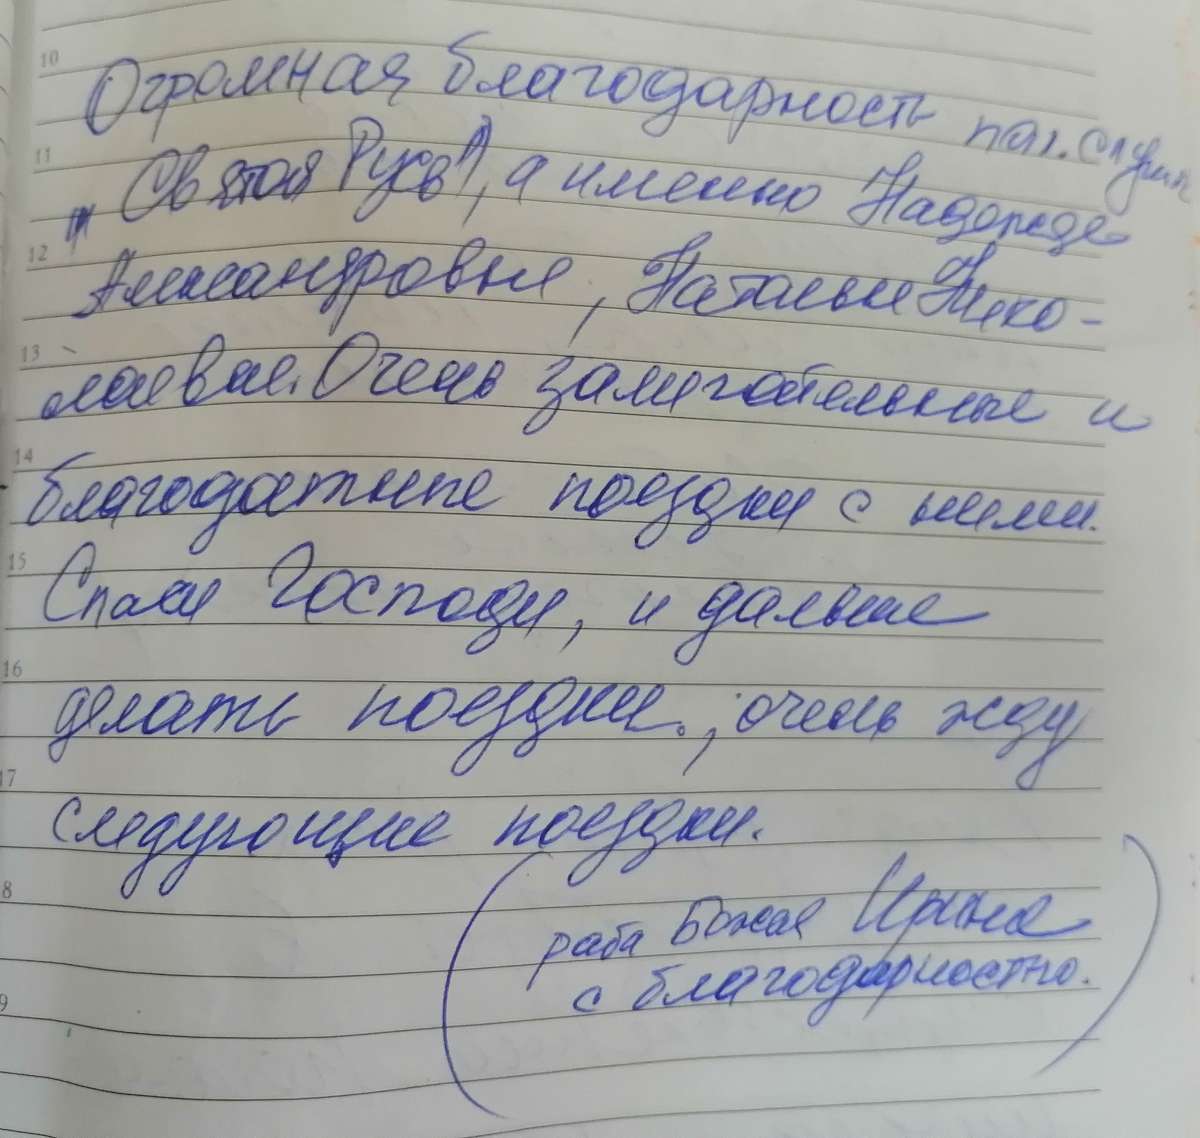 10
Огромная благодарность пал. служ
11
„Святая Русь", а именно Надежде
12
Александровне, Наталье Нико-
13
лаевне. Очень замечательные и
14
благодатные поездки с ними.
15
Спаси Господи, и дальше
16
делать поездки., очень жду
17
следующие поездки.
8
раба Божая Ирина
9
с благодарностью.